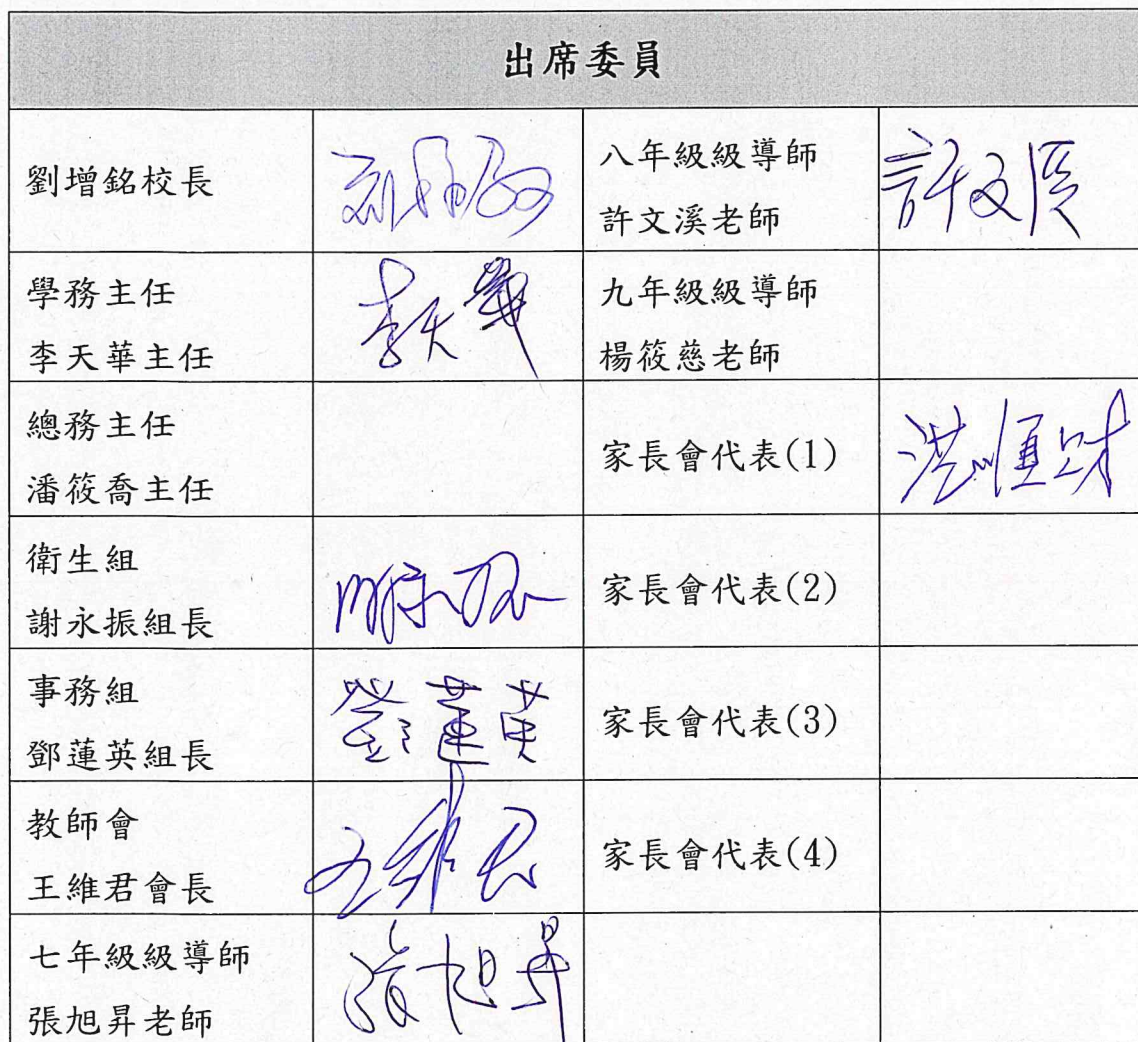 出席委員
劉增銘校長
八年級級導師
許文溪老師
許文溪
學務主任
李天華主任
李天華
九年級級導師
楊筱慈老師
總務主任
潘筱喬主任
家長會代表(1)
衛生組
謝永振組長
家長會代表(2)
事務組
鄧蓮英組長
鄧蓮英
家長會代表(3)
教師會
王維君會長
王維君
家長會代表(4)
七年級級導師
張旭昇老師
張旭昇